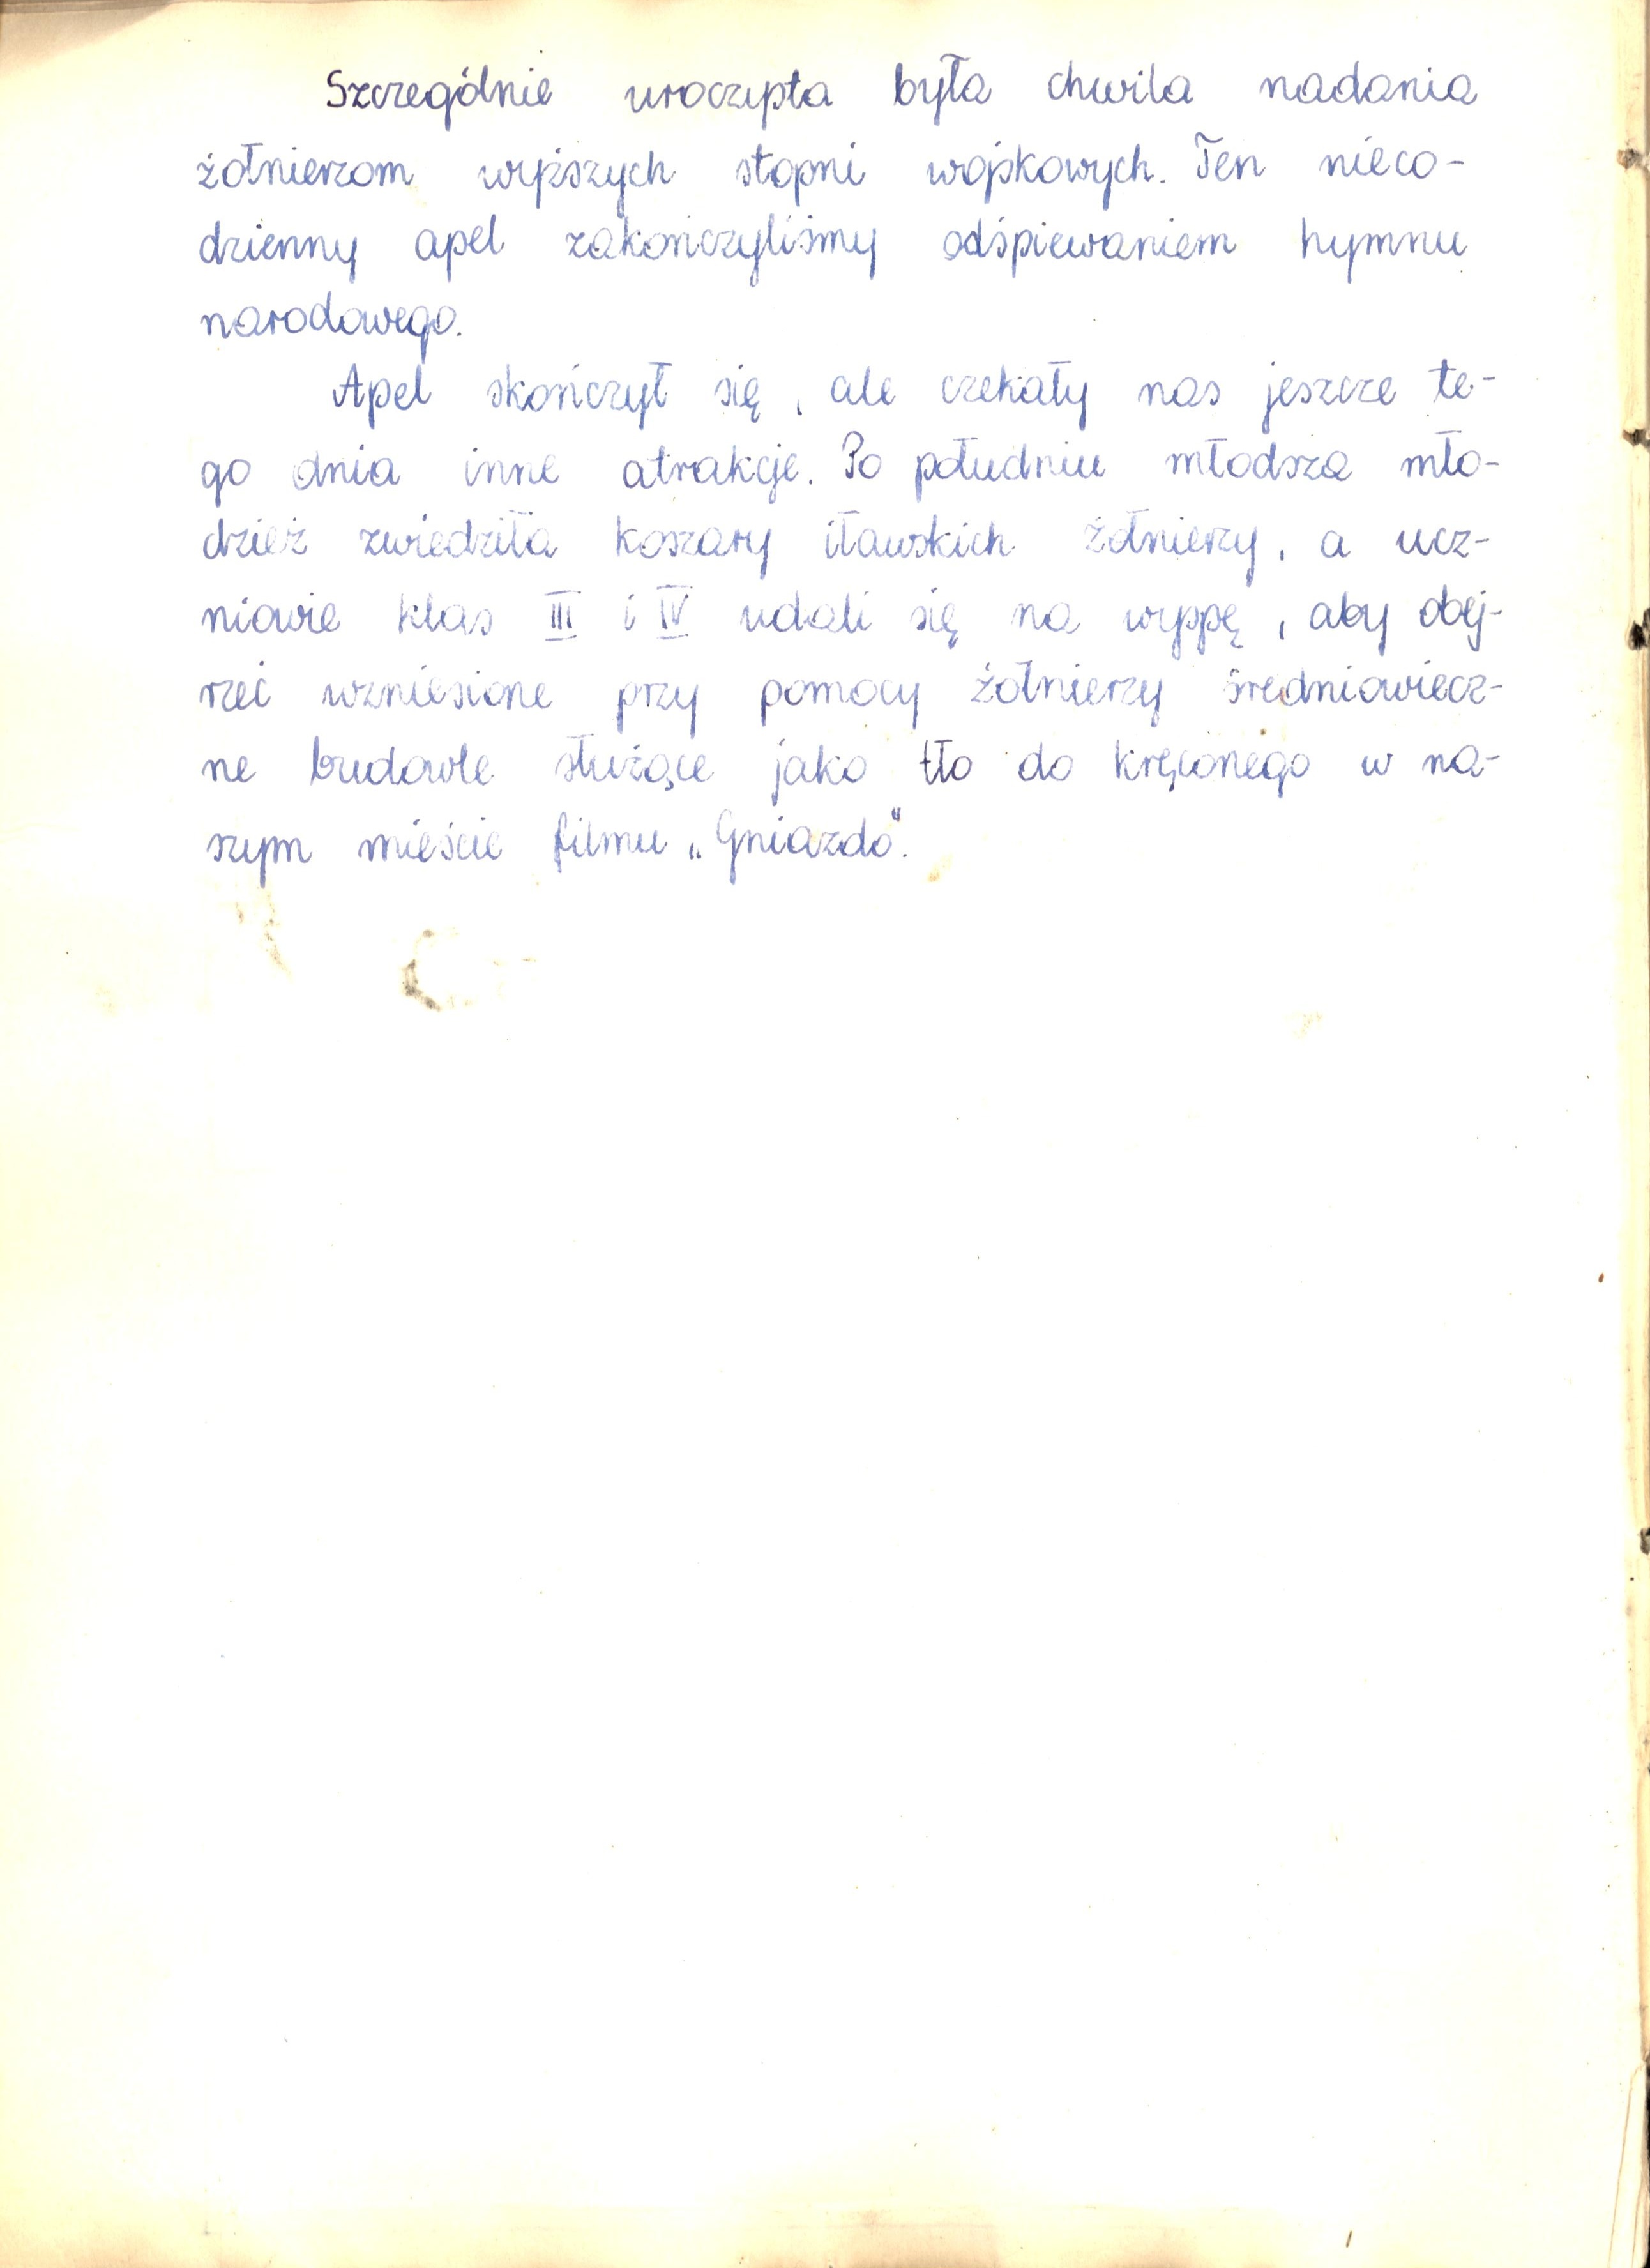 Szczególnie uroczysta była chwila nadania
żołnierzom wyższych stopni wojskowych. Ten nieco-
dzienny apel zakończyliśmy odśpiewaniem hymnu
narodowego.
Apel skończył się, ale czekały nas jeszcze te-
go dnia inne atrakcje. Po południu młodsza mło-
dzież zwiedziła koszary iławskich żołnierzy, a ucz-
niowie klas III i IV udali się na wyspę, aby obej-
rzeć wzniesione przy pomocy żołnierzy średniowiecz-
ne budowle służące jako tło do kręconego w na-
szym mieście filmu „Gniazdo".